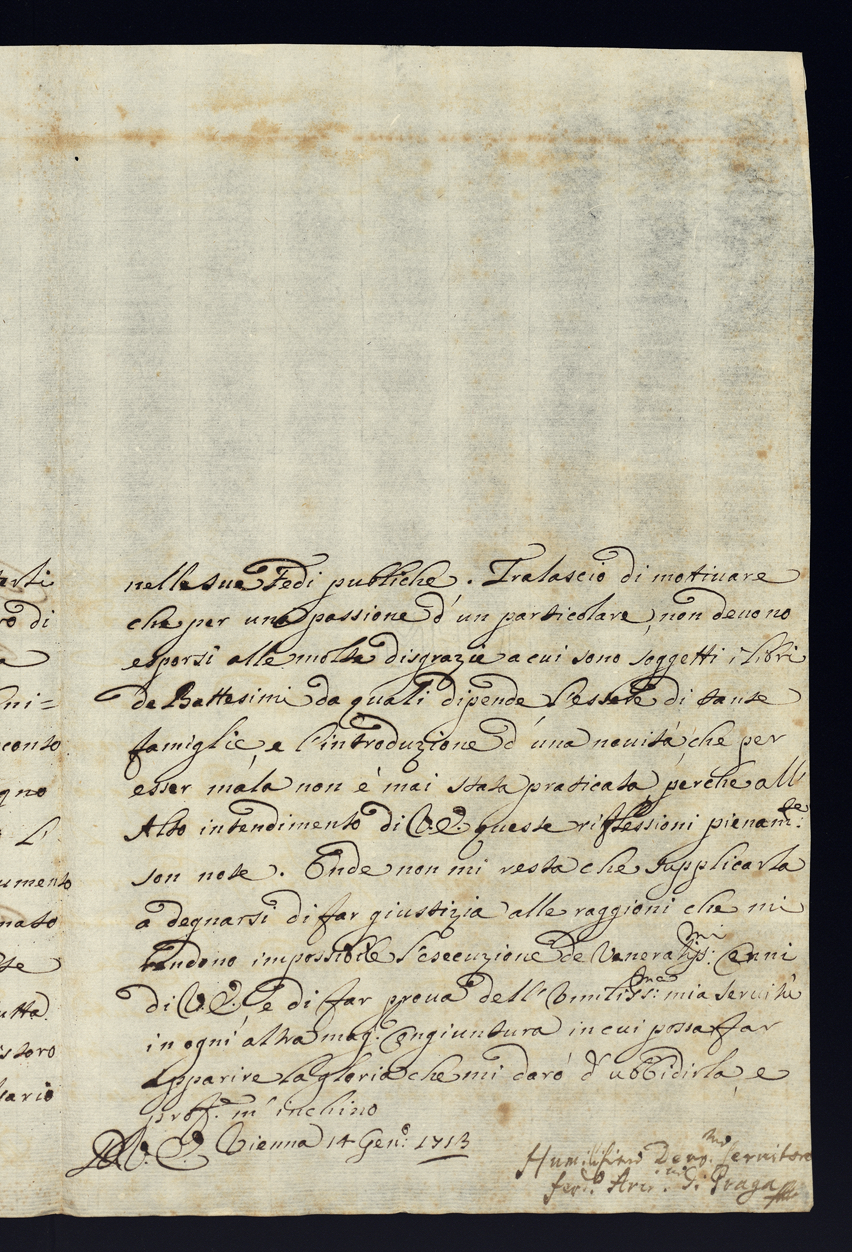 nelle sue Fedi publiche. Tralascio di motivare
che per una passione d'un particolare, non devono
esporsi alle molte disgrazie a cui sono soggetti i libri
de Battesimi da quali dipende l'essere di tante
famiglie, e l'introduzione d'una novità che per
esser mala non è mai stata praticata, perche all'
Alto intendimento di V.E. queste riflessioni pienam:te
son note. Onde non mi resta che supplicarla
a degnarsi di far giustizia alle raggioni che mi
rendono impossibile l'esecuzione de Veneratiss:mi Cenni
di V.E., e di far prova dell'Umiliss:ma mia servitù
in ogni altra mag: Congiuntura in cui possa far
apparire la gloria che mi darò d'ubbidirla, e
prof:te m'inchino
D. V. E. Vienna 14 Gen: 1713
Humilissimo Devo:mo servitore
Ferd: G. Praga
arti
ro di
a
ni=
conto
gno
L'
umento
nato
te
utta
istoro
sario